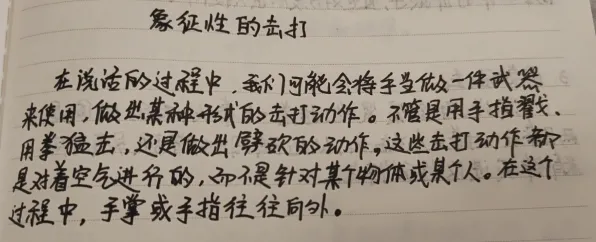 象征性的击打
在说话的过程中，我们可能会将手当做一件武器
来使用，做出某种形式的击打动作。不管是用手指戳、
用拳猛击，还是做出劈砍的动作，这些击打动作都
是对着空气进行的，而不是针对某个物体或某个人。在这个
过程中，手掌或手指往往向外。